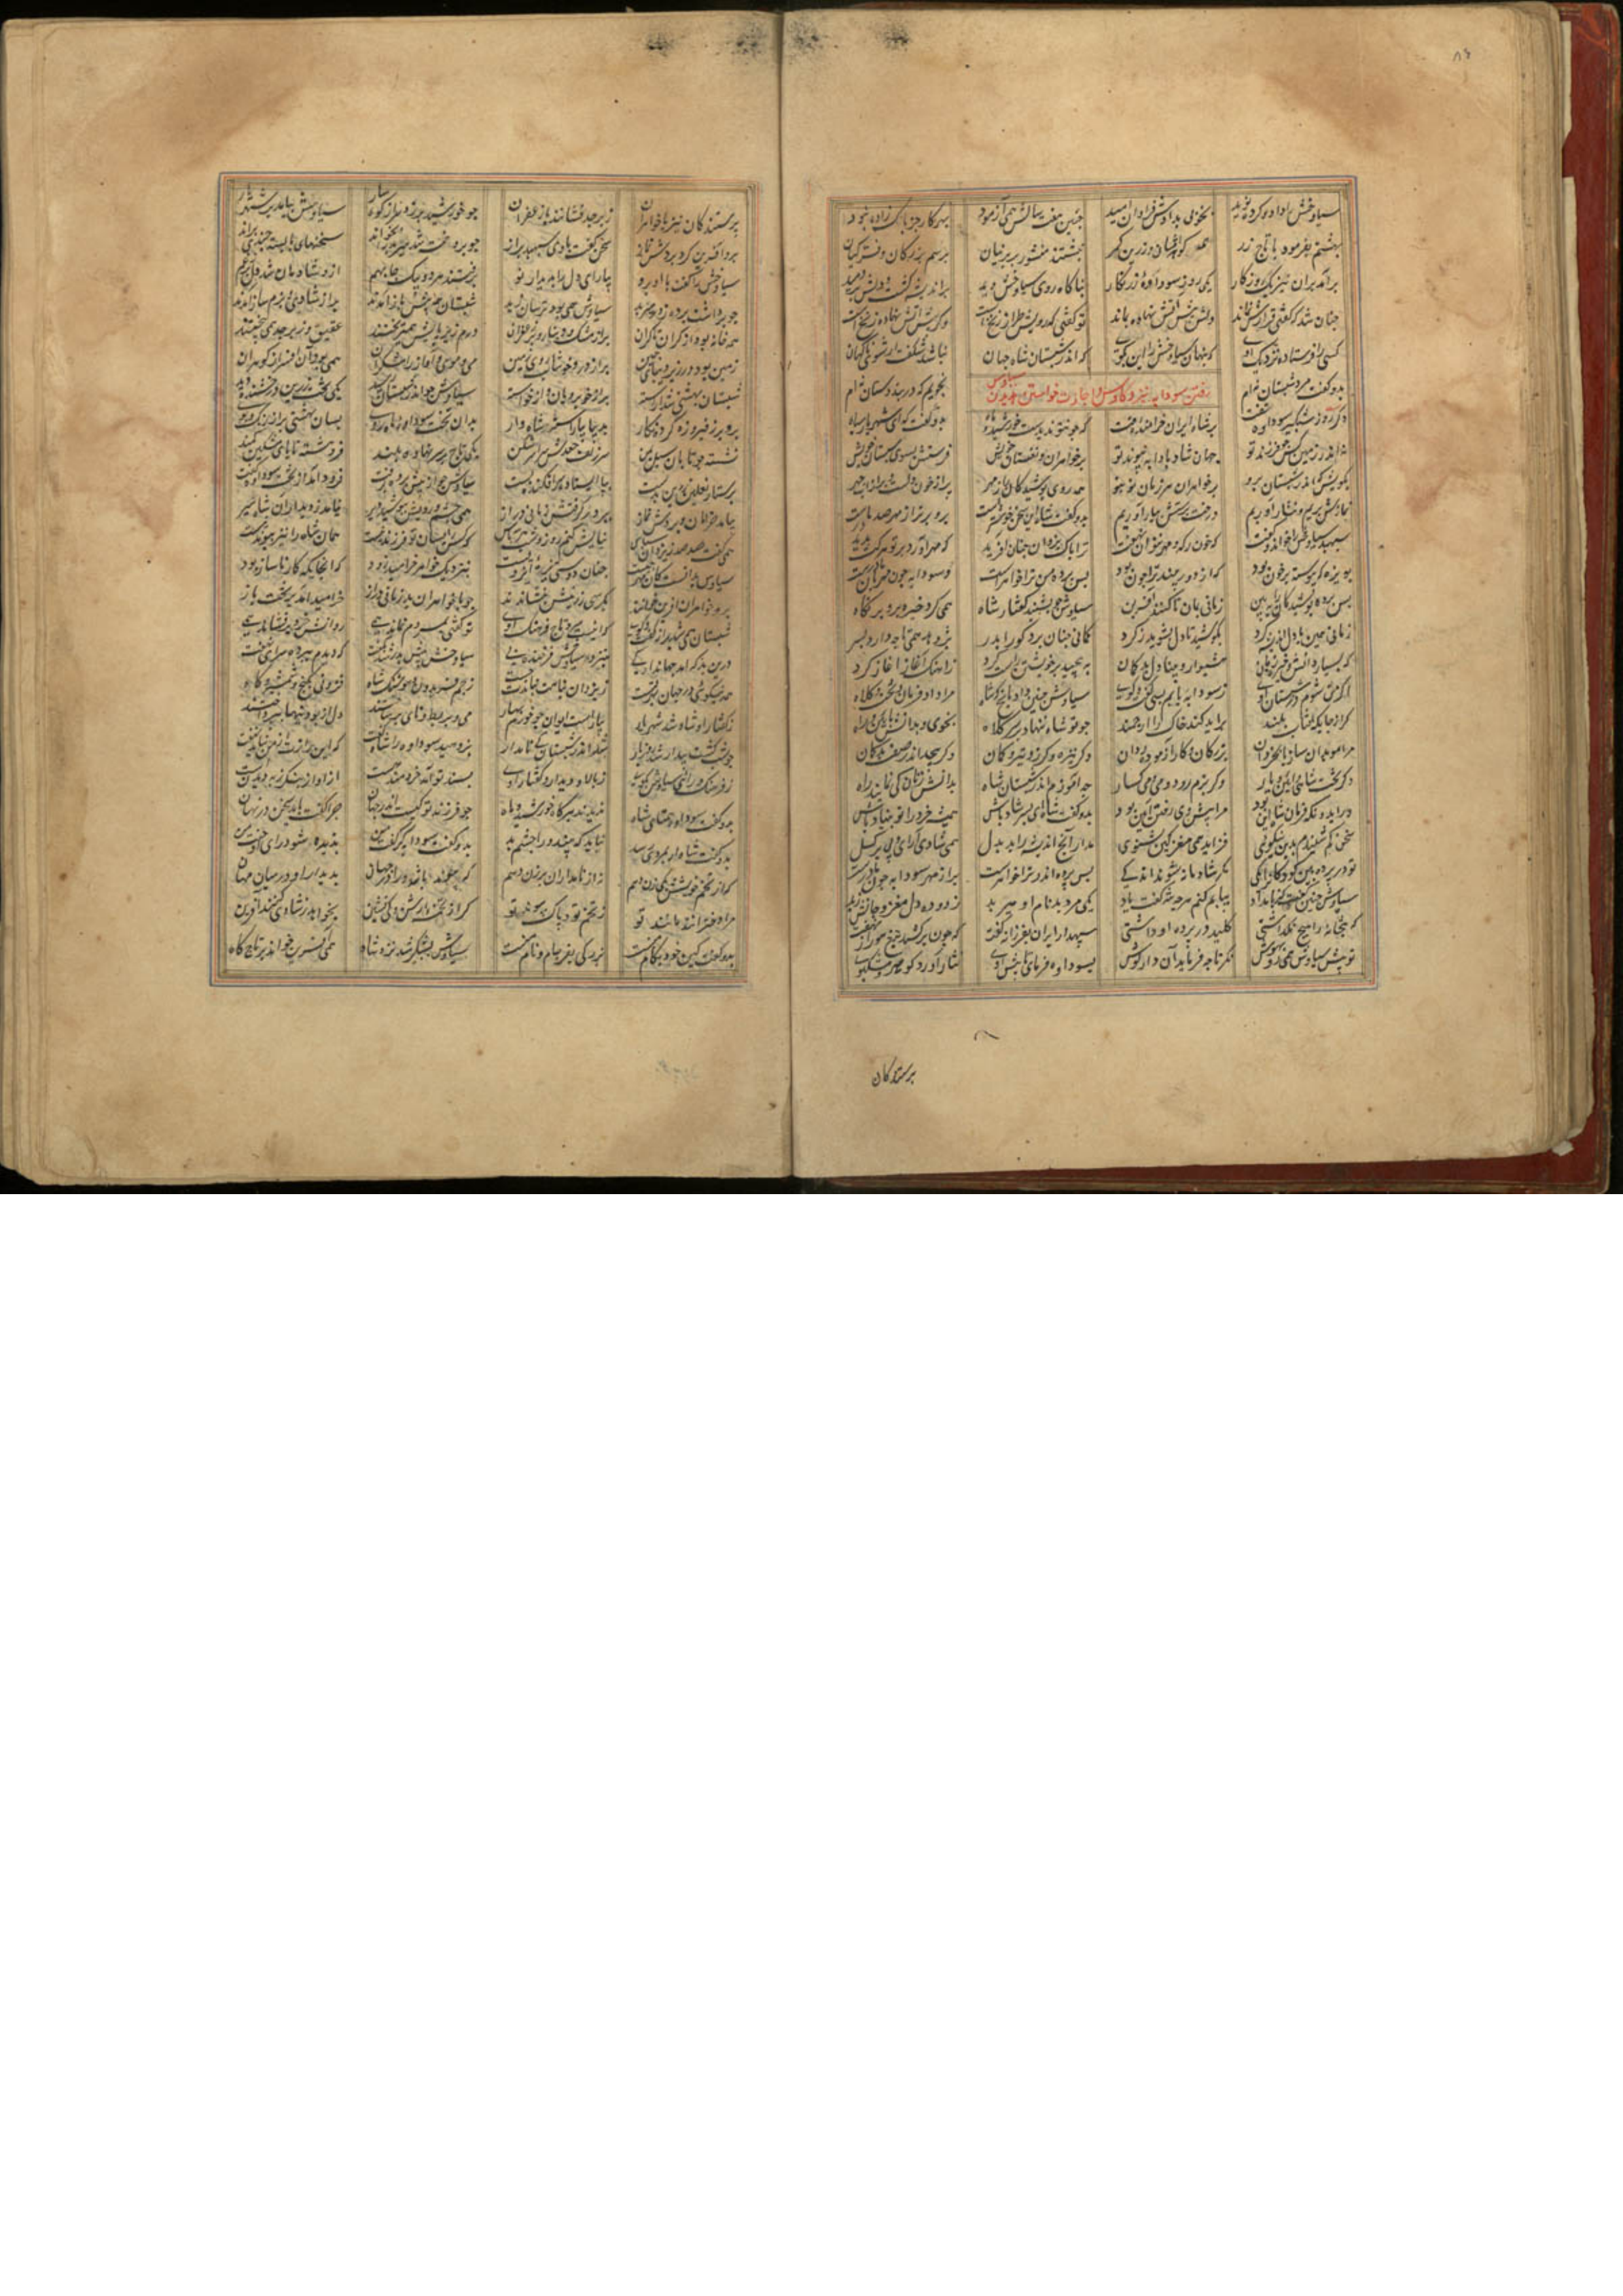 سیاوخش را داد و کردش نوید بخوبی بدادش فراوان امید چنین هفت سالش همی آزمود بهر کار جز پاک زاده نبود
بهشتم بفرمود تا تاج زر همه و زرین کمر نبشتند منشور بر پرنیان برسم بزرکان و فر کیان
برآمد برین نیز یک روزکار یکی روز سوداوه ناکاه روی سیاوخش دید پر اندیشه کشت و دلش بردمید
چنان شد که کفتی قرارش نماند دلش پیش آتش نهاده بماند تو کفتی که رویش طراز نخ است وکر پیش آتش نهاده یخ است
کسی را فرستاد نزدیک او که پنهان سیاوخش را این بکوی که اندر شبستان شاه جهان نباشد شکفت ار شوی ناکهان
بدو کفت مرد شبستان نه ام نجویم که در بند و دستان نه ام
رفتن سودابه بنزد کاوس و اجازت خواستن سیاوس
دکر روز شبکیر سوداوه رفت بر شاه ایران خرامنده تفت که چون تو ندیدست خورشید و ماه بدو کفت که ای شهریار سپاه
نه اندر زمین کس چو فرزند تو جهان شاد بادا به پیوند تو بر خواهران و فغستان خویش فرستش بسوی شبستان خویش
بکویش که اندر شبستان برو بر خواهران هر زمان نو بنو همه روی پوشیدکان را ز مهر پر از خون دلست و پر از آب چهر
نمازش بریم و نثار آوریم درخت پرستش ببار آوریم بدو کفت شاه این سخن درخورست برو بر ترا مهر صد مادرست
سپهبد سیاوخش را خواند و کفت که خون رک و مهر نتوان نهفت ترا پاک یزدان چنان آفرید که مهر آورد بر تو هرکت بدید
بویژه که پیوسته خون بود که از دور بیند ترا چون بود پس پرده من ترا خواهرست چو سودابه چون مهربان مادرست
پس پرده پوشیدکان را ببین زمانی بمان تا کنند آفرین سیاوش چو بشنید کفتار شاه همی کرد خیره بدو در نکاه
زمانی همی با دل اندیشه کرد بکوشید تا دل بشوید ز کرد کمانی چنان برد کورا پدر پژوهد همی تا چه دارد بسر
که بسیار دانش هشیوار و بینا دل و بدکمان بپیچید بر خویشتن راز کرد از آهنک آغاز آغاز کرد
که کر من شوم در شبستان اوی ز سودابه یابم بسی کفت و کوی سیاوش چنین داد پاسخ بشاه مرا داد فرمان و تخت و کلاه
کز آن جایکه کافتاب بلند برآید کند خاک را ارجمند چو تو شاه ننهاد بر سر کلاه بخوی و بدانش بآیین و راه
مرا موبدان ساز با بخردان بزرکان و کار آزموده ردان دکر نیزه و کرز و تیر و کمان اندر صف بدکمان
دکر تخت شاهی و آیین بار دکر بزم و رود و می و میکسار چه آموزم اندر شبستان شاه بدانش زنان کی نمایند راه
ور ایدونک فرمان شاه این بود مرا پیش وی رفتن آیین بود بدو کفت شاه ای پسر شاد باش همیشه خرد را تو بنیاد باش
سخن کم شنیدم بدین نیکوی فزاید همی مغز کین بشنوی مدار ایچ اندیشه بد بدل همی شادی آرای و غم برکسل
تو در پرده بین کودکان را یکی مکر شادمانه شوند اندکی پس پرده اندر ترا خواهرست پر از مهر سودابه چون مادرست
سیاوش چنین کفت کز بامداد بیایم کنم هرچه شه کفت یاد یکی مرد بد نام او هیربد زدوده دل و مغز و جانش ز بد
که بتخانه را هیچ نکذاشتی کلید در پرده او داشتی سپهدار ایران بفرزانه کفت که چون برکشد تیغ هور از نهفت
تو پیش سیاوش همی رو بهوش نکر تا چه فرماید آن دار کوش بسوداوه فرمای تا پیش اوی نثار آورد کوهر و مشک و بوی
پرستندکان
پرستندکان نیز با خواهران زبرجد فشانند با زعفران چو خورشید برزد سر از کوهسار سیاوش بیامد بر شهریار
برو آفرین کرد و بردش نماز سخن کفت با وی سپهبد براز چو پردخت شد هیربد را بخواند سخنهای بایسته چندی براند
سیاوخش را کفت با او برو بیارای دل را بدیدار نو برفتند هر دو بیک جا بهم ازو شادمان شد دل
چو برداشت پرده ز در هیربد سیاوش همی بود ترسان ز بد شبستان همه پیش باز آمدند پر از شادی و بزم ساز آمدند
همه خانه بود از کران تا کران پر از مشک و دینار و پر زعفران درم زیر پایش همی ریختند عقیق و زبرجد همی بیختند
زمین بود در زیر دیبای چین پر از در خوشاب روی زمین می و رود و آواز رامشکران همی بود افسر از کوهران
شبستان بهشتی شد آراسته پر از خوبرویان و از خواسته سیاوش چو اندر شبستان رسید یکی تخت زرین درخشنده دید
برو بر ز فیروزه کرده نکار بدیبا بیاراسته شاهوار بدان تخت سوداوه ماه روی بسان بهشتی پر از رنک و بوی
نشسته چو تابان سهیل یمن سر زلف جعدش سر شکن یکی تاج بر سر نهاده بلند فروهشته تا پای مشکین کمند
پرستار نعلین زرین بدست بپا ایستاده سر افکنده پست سیاوش چو از پیش پرده برفت فرود آمد از تخت سوداوه تفت
بیامد خرامان و بردش نماز ببر در کرفتش زمانی دراز همی چشم و رویش ببوسید دیر نیامد ز دیدار آن شاه سیر
همی کفت صد ره ز یزدان سپاس نیایش کنم روز و شب سه پاس که کس را بسان تو فرزند نیست همان شاه را نیز پیوند نیست
سیاوس بدانست کان مهر چیست چنان دوستی نز ره ایزدیست بنزدیک خواهر خرامید زود که آنجایکه کار ناساز بود
برو خواهران آفرین خواندند بکرسی زرینش بنشاندند چو با خواهران بد زمانی دراز خرامید بر تخت باز
شبستان همه شد پر از کفت و کوی که اینت سر و تاج فرهنک جوی تو کفتی بمردم نماند همی روانش خرد برفشاند همی
درین بد که آمد بنزد سیاوخش فرخنده پی سیاوخش پیش پدر شد بکفت که دیدم بپرده سرای نهفت
همه نیکوی در جهان بهر تست ز یزدان بهانه نبایدت جست ز جم و فریدون و هوشنک شاه فزونی بکنج و بشمشیر و کاه
ز کفتار او شاد شد شهریار بیاراست ایوان چو خرم بهار می و بربط و نای برساختند دل از بودنیها بپرداختند
چو شب کشت پیدا و شد روز تار شد اندر شبستان نامدار پژوهید سوداوه را شاه کفت که این راز از من نباید نهفت
ز فرهنک و رای سیاوش بکوی ز بالا و دیدار و کفتار اوی پسند تو آمد خردمند هست از آواز
بدو کفت سوداوه همتای شاه ندیدند بر کاه خورشید و ماه چو فرزند تو کیست اندر جهان چرا کفت باید سخن در نهان
بدو کفت شاه ار بمردی رسد نباید که بیند ورا چشم بد بدو کفت سودابه کر کفت من پذیره شود رای جفت من
که از تخم خویشش یکی زن دهم نه از نامداران برزن دهم که فرزند باشد ورا در جهان بدیدار او در میان مهان
مرا دخترانند مانند تو ز تخم تو و پاک پیوند تو کر از تخم کی آرش و کی پشین بخواهد ز شادی کنند آفرین
بدو کفت کین خود بکام منست بزرکی بفرجام و نام منست سیاوش بشبکیر شد نزد شاه همی آفرین خواند بر تاج و کاه